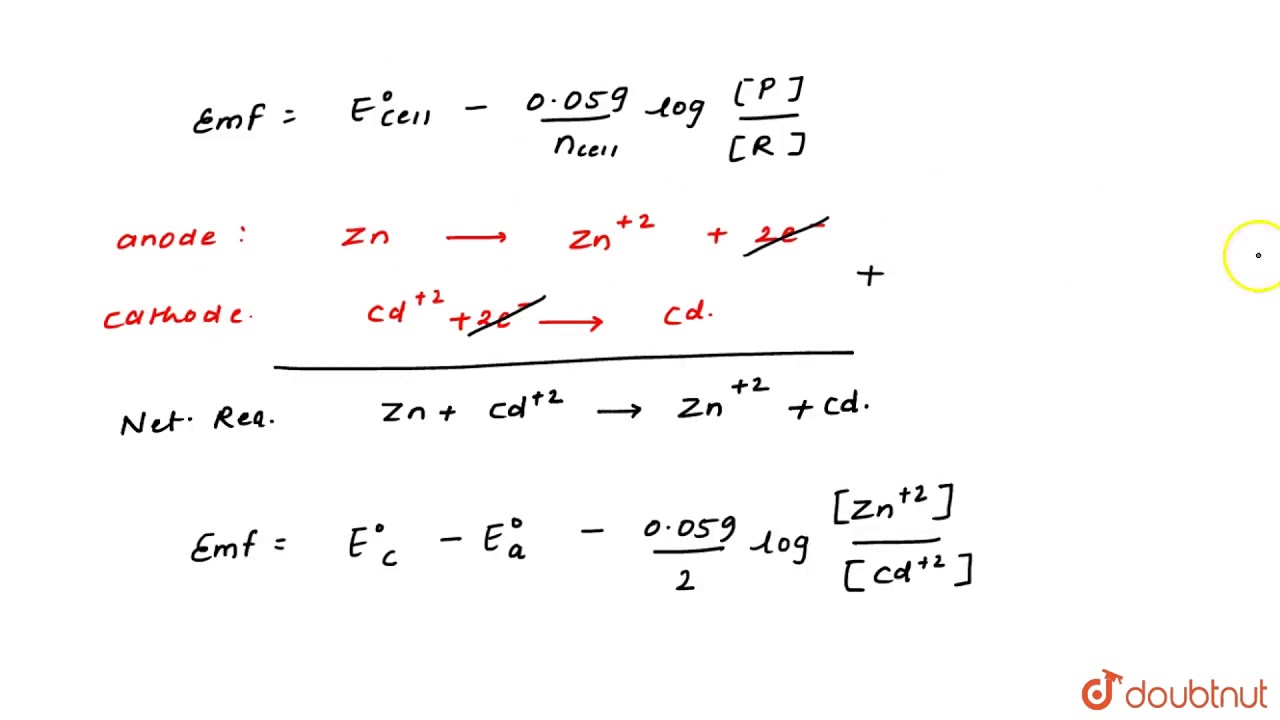 Emf = E°cell - 0.059/ncell log [P]/[R]
anode: Zn ⟶ Zn⁺² + 2e⁻
+
cathode. cd⁺² + 2e⁻ ⟶ cd.
Net. Rea. Zn + cd⁺² ⟶ Zn⁺² + cd.
Emf = E°c - E°a - 0.059/2 log [Zn⁺²]/[cd⁺²]
doubtnut